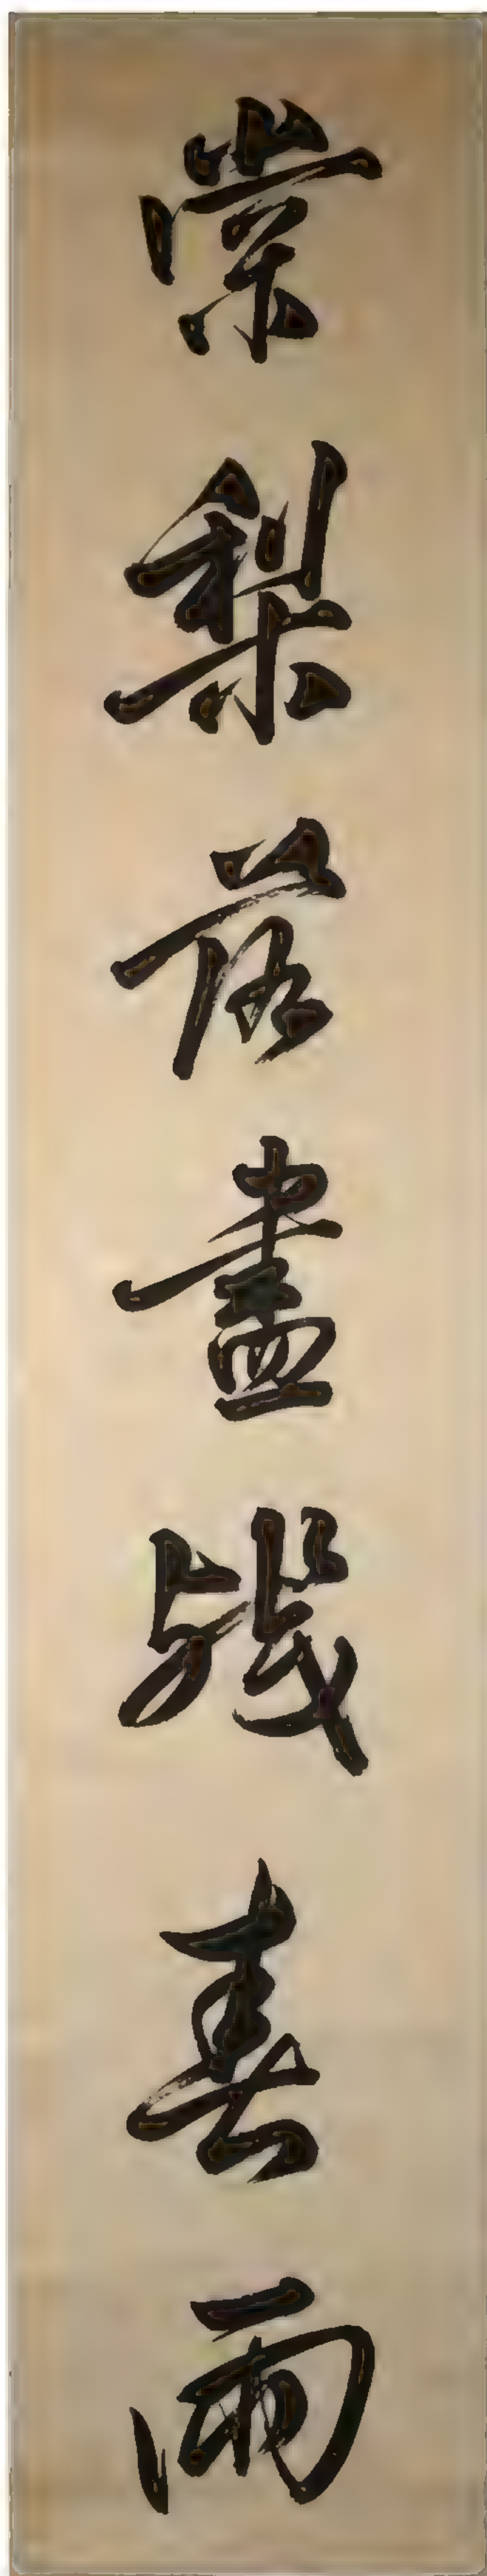 棠梨落盡殘春雨